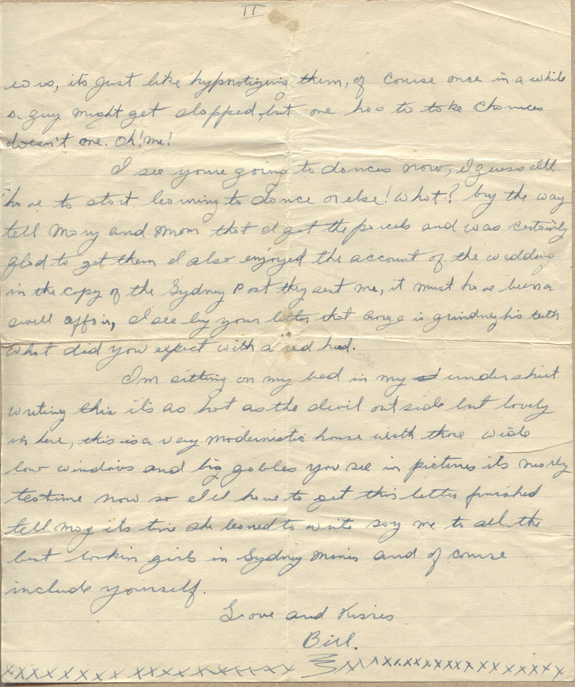 II
is, its just like hypnotizing them, of course once in a while
a guy might get slapped, but one has to take chances
doesn't one. Oh! me!
I see you're going to dances now, I guess I'll
have to start learning to dance or else! What? by the way
tell Mary and Mom that I got the parcels and was certainly
glad to get them I also enjoyed the account of the wedding
in the cpy of the Sydney Post they sent me, it must have been a
swell affair, I see by your letter that is grinding his teeth
what did you expect with a red head.
I'm sitting on my bed in my undershirt
writing this it's as hot as the devil outside but lovely
in here, this is a very modernistic house with those wide
low windows and big gables you see in pictures its nearly
teatime now so I'll have to get this letter finished
tell its time she learned to write say me to all the
best lookin girls in Sydney Mines and of course
include yourself.
Love and Kisses
Bill.
xxxxxxxxxxxxxxxxxxxx xxxxxxxxxxxxxxxxxx